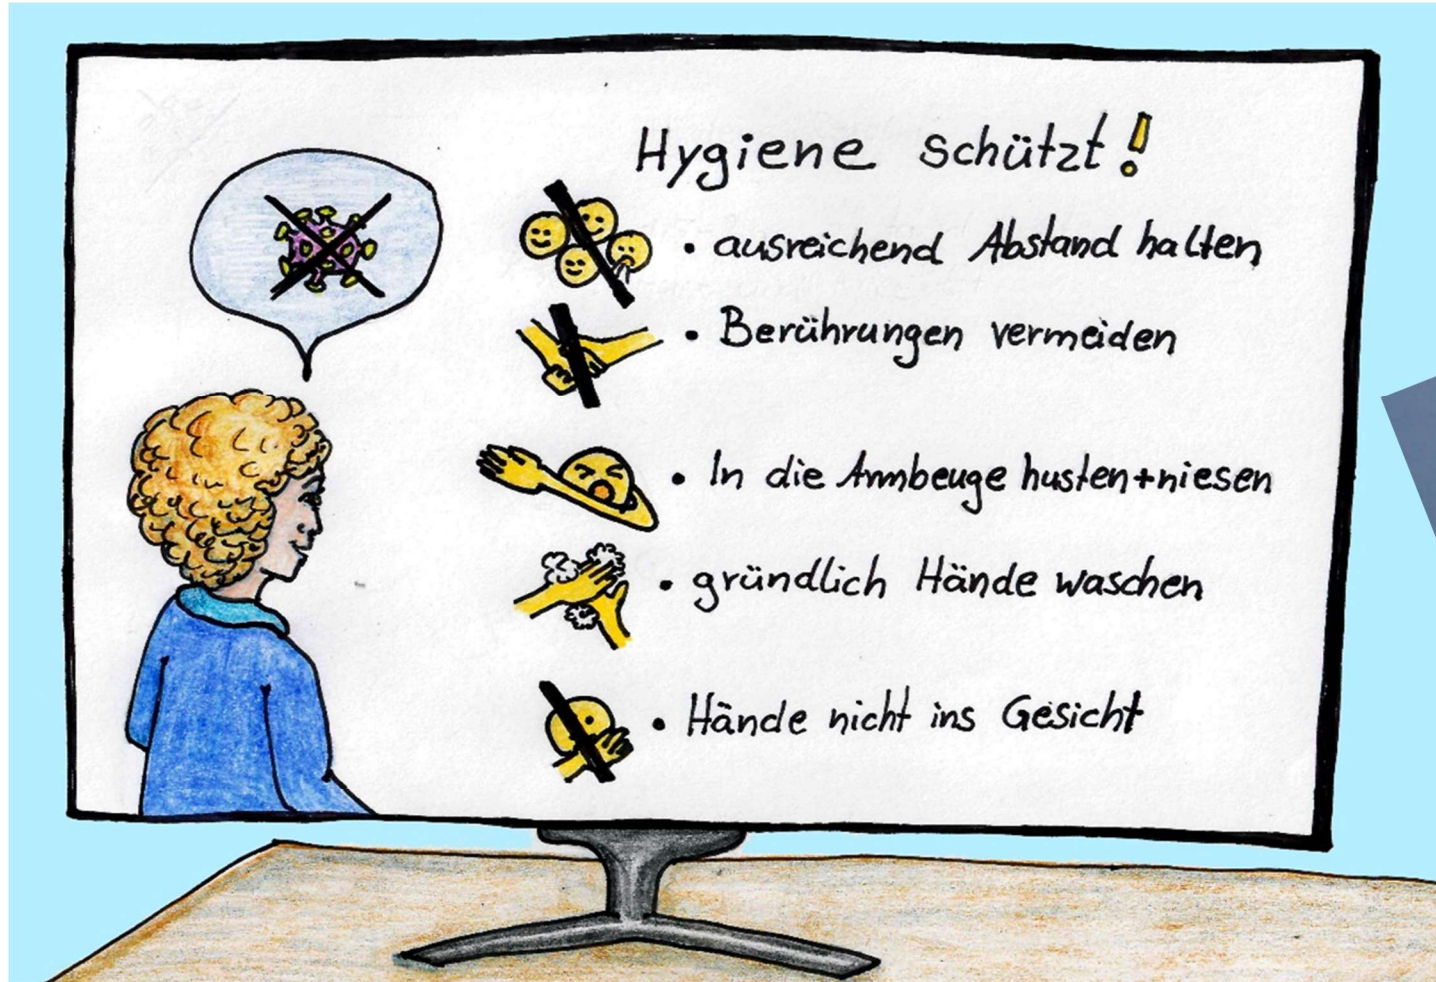 Hygiene schützt!
• ausreichend Abstand halten
• Berührungen vermeiden
• In die Armbeuge husten+niesen
• gründlich Hände waschen
• Hände nicht ins Gesicht